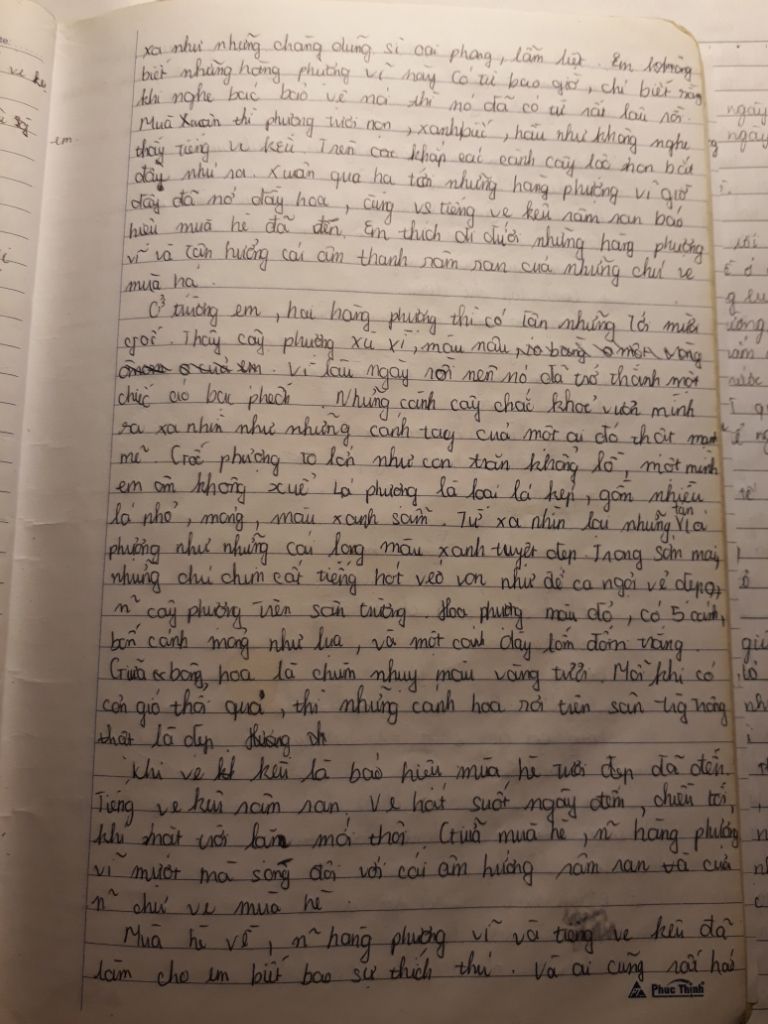 xa như những chàng dũng sĩ oai phong, lẫm liệt. Em không
biết những hàng phượng vĩ này có từ bao giờ, chỉ biết rằng
khi nghe bác bảo vệ nói thì nó đã có từ rất lâu rồi.
Muà Xuân thì phượng tươi non, xanh biếc, hầu như không nghe
thấy tiếng ve kêu. Trên các khắp các cành cây lóc non bắt
đầy nhú ra. Xuân qua hạ tới những hàng phượng vĩ giờ
đây đã nở đầy hoa, cùng vs tiếng ve kêu râm ran báo
hiệu muà hè đã đến. Em thích đi dưới những hàng phượng
vĩ và tận hưởng cái âm thanh râm ran của những chú ve
muà hạ.
Ở trường em, hai hàng phượng thì có tận những tới mười
gốc. Thấy cây phượng xù xì, màu nâu,
em. Vì lâu ngày rồi nên nó đã trở thành một
chiếc áo bạc phếch. Những cành cây chắc khoẻ vươn mình
ra xa nhìn như những cánh tay của một ai đó thật mạnh
mẽ. Gốc phượng to lớn như con trăn khổng lồ, một mình
em ôm không xuể. Lá phượng là loại lá kép, gồm nhiều
lá nhỏ, mỏng, màu xanh sẫm. Từ xa nhìn lại những tán lá
phượng như những cái lọng màu xanh tuyệt đẹp. Trong sớm mai,
những chú chim cất tiếng hót véo von như để ca ngợi vẻ đẹp
n~ cây phượng trên sân trường. Hoa phượng màu đỏ, có 5 cánh,
bốn cánh mỏng như lụa, và một cánh dày lốm đốm vàng.
Giữa bông hoa là chùm nhuỵ màu vàng tươi. Mỗi khi có
cơn gió thổi qua, thì những cánh hoa rơi trên sân trông
thật là đẹp. Hương
Khi ve kêu là báo hiệu mùa hè tươi đẹp đã đến.
Tiếng ve kêu râm ran. Ve hát suốt ngày đêm, chiều tối,
khi mặt trời lặn mới thôi. Giữa muà hè, n~ hàng phượng
vĩ mướt mà sóng đôi với cái âm hưởng râm ran của
n~ chú ve muà hè
Muà hè về, n~ hàng phượng vĩ và tiếng ve kêu đã
làm cho em biết bao sự thích thú. Và ai cũng rất háo
Phúc Thịnh
em.
ve kê
ngày
ngày